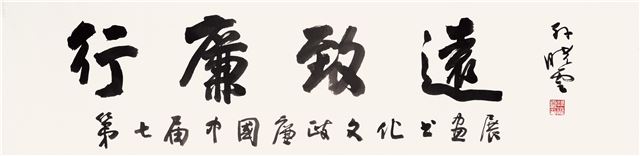 行廉致遠
第七届中國廉政文化书畫展
孙晓雲